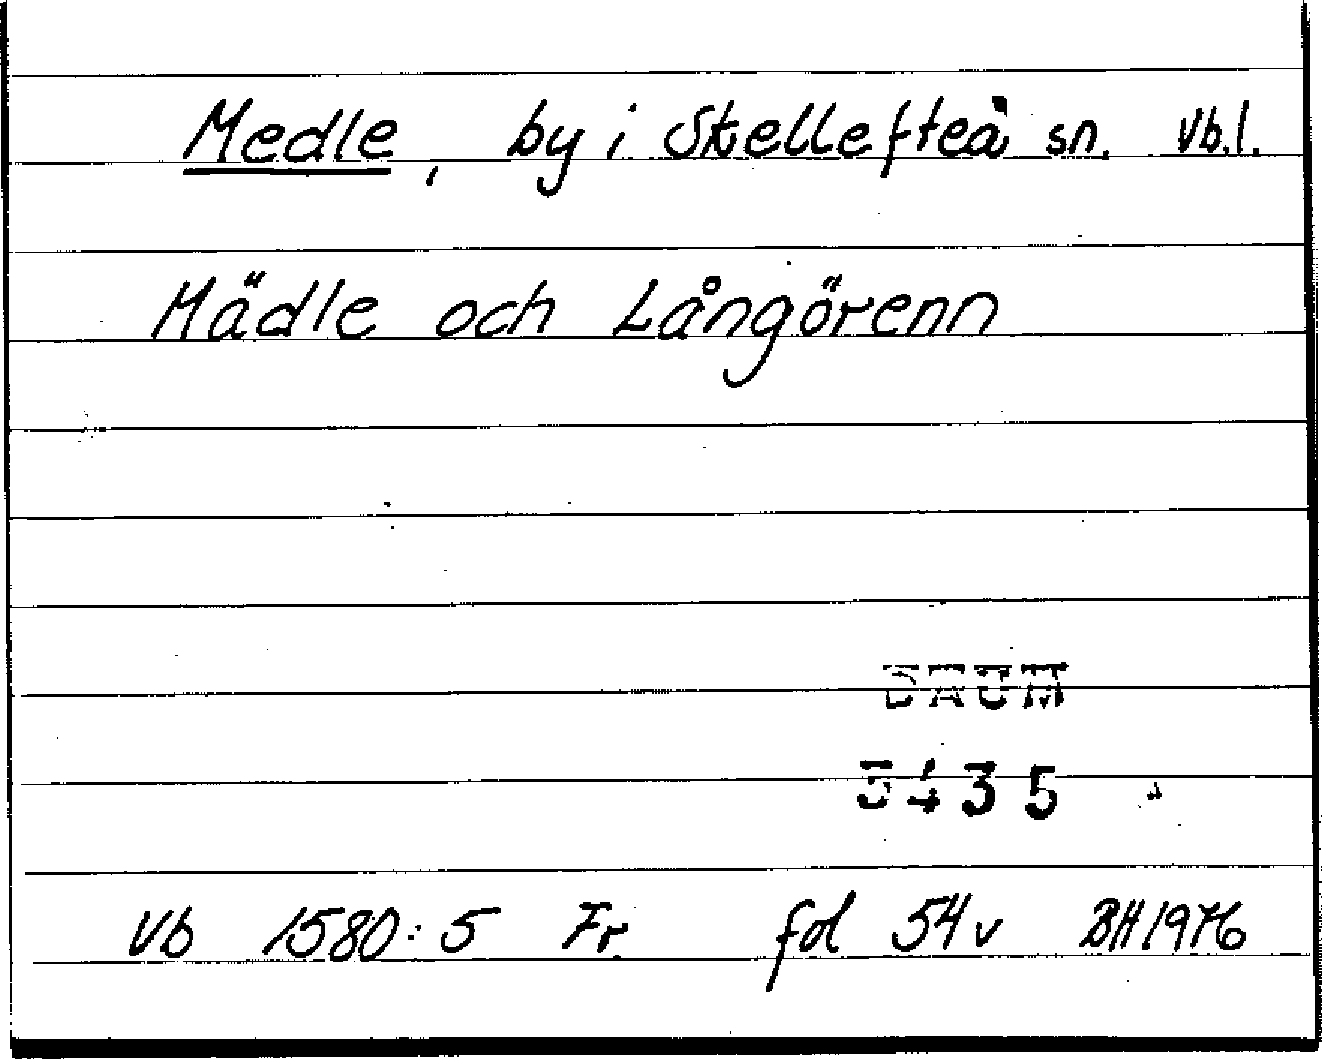 Medle, by i Skellefteå sn. Vb.l.
Mädle och Långörenn
DAUM
5435
Vb 1580:5 Fr. fol 54v BH 1976